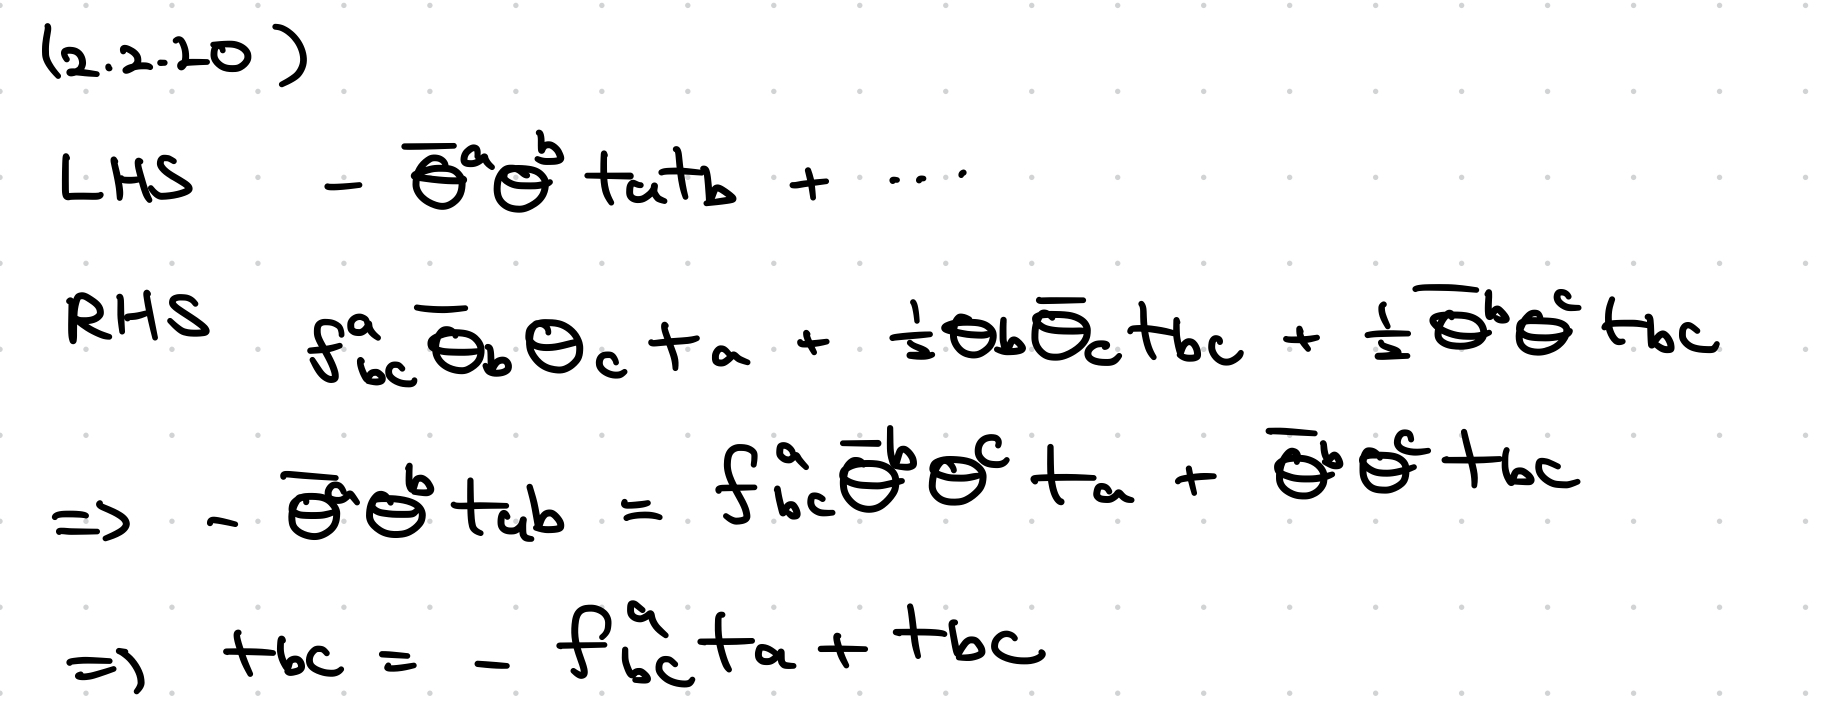 (2.2.20)
LHS - θ̄ᵃθᵇ tₐt_b + ...
RHS fᵃ_bc θ̄_b θ_c tₐ + ½ θ_b θ̄_c t_bc + ½ θ̄ᵇ θᶜ t_bc
=> - θ̄ᵃθᵇ t_ab = fᵃ_bc θ̄ᵇ θᶜ tₐ + θ̄ᵇ θᶜ t_bc
=> t_bc = - fᵃ_bc tₐ + t_bc